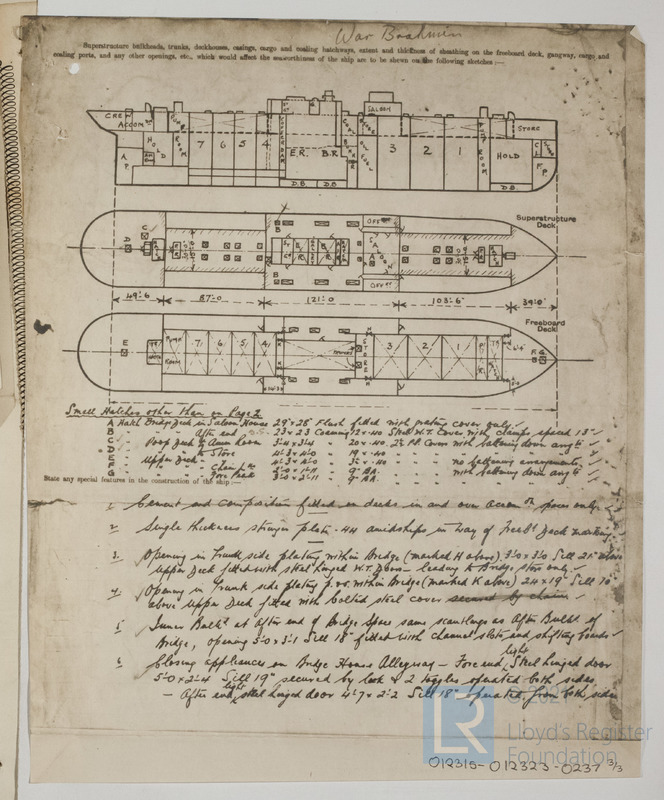 War Brahmin
Superstructure bulkheads, trunks, deckhouses, casings, cargo and coaling hatchways, extent and thickness of sheathing on the freeboard deck, gangway, cargo and
coaling ports, and any other openings, etc., which would affect the seaworthiness of the ship are to be shewn on the following sketches:—
CREW
ACCOM
HOLD
A.P.
7 6 5 4
E.R. B.R.
SALOON
3 2 1
STORE
HOLD
F.P.
D.B. D.B.
D.B.
Superstructure
Deck
49'·6 87'·0 121'·0 103'·6" 39'·0"
Freeboard
Deck
7 6 5 4 3 2 1
Small Hatches other than on Page 2
A Hatch Bridge Deck in Saloon House 29" x 28" Flush fitted with plating cover only.
B After end 23 x 23 Coaming 12 x .40 Steel W.T. Cover with clamps spaced 13"
C Poop Deck to Amm Room 3'·4 x 3'·4 20 x .40 2½ P.P. Covers with battening down angle
D to Store 4'·3 x 4'·0 19 x .40
E Upper Deck 4'·3 x 4'·0 no battening arrangements
F 9" BA. with battening down angle
G Fore Peak 3'·0 x 2'·11 9" BA.
State any special features in the construction of the ship:—
1. Cement and composition fitted on decks in and over accom spaces only.
2. Single thickness stringer plate .44 amidships in way of Freebd Deck marking
3. Opening in trunk side plating within Bridge (marked H above) 3'·0 x 3'·0 Sill 21" above
upper Deck fitted with steel hinged W.T. Doors leading to Bridge store only
4. Opening in trunk side plating p. & s. within Bridge (marked K above) 24 x 19" Sill 10"
above upper Deck fitted with bolted steel cover secured by chains
5. Inner Bulkd at After end of Bridge Space same scantlings as After Bulkd of
Bridge, opening 5'·0 x 3'·1 Sill 18" fitted with channel slots and shifting boards
6. Closing appliances on Bridge House Alleyway — Fore end, light Steel hinged door
5'·0 x 2'·4 Sill 19" secured by lock & 2 toggles operated both sides
— After end light steel hinged door 4'·7 x 2'·2 Sill 18" operated from both sides
LR
Lloyd's Register
Foundation
012315-012323-0237 3/3